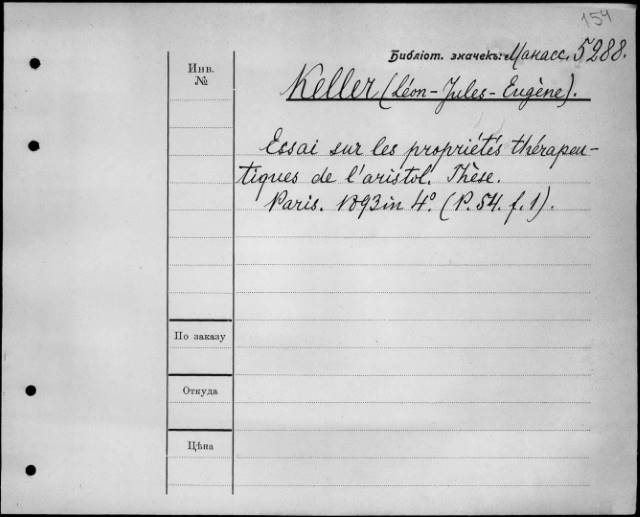 154
Библіот. значекъ: Манасс. 5288.
Инв.
№
Keller (Léon-Jules-Eugène).
Essai sur les propriétés thérapeu-
tiques de l'aristol. Thèse.
Paris. 1893 in 4° (P. 54. f. 1).
По заказу
Откуда
Цѣна